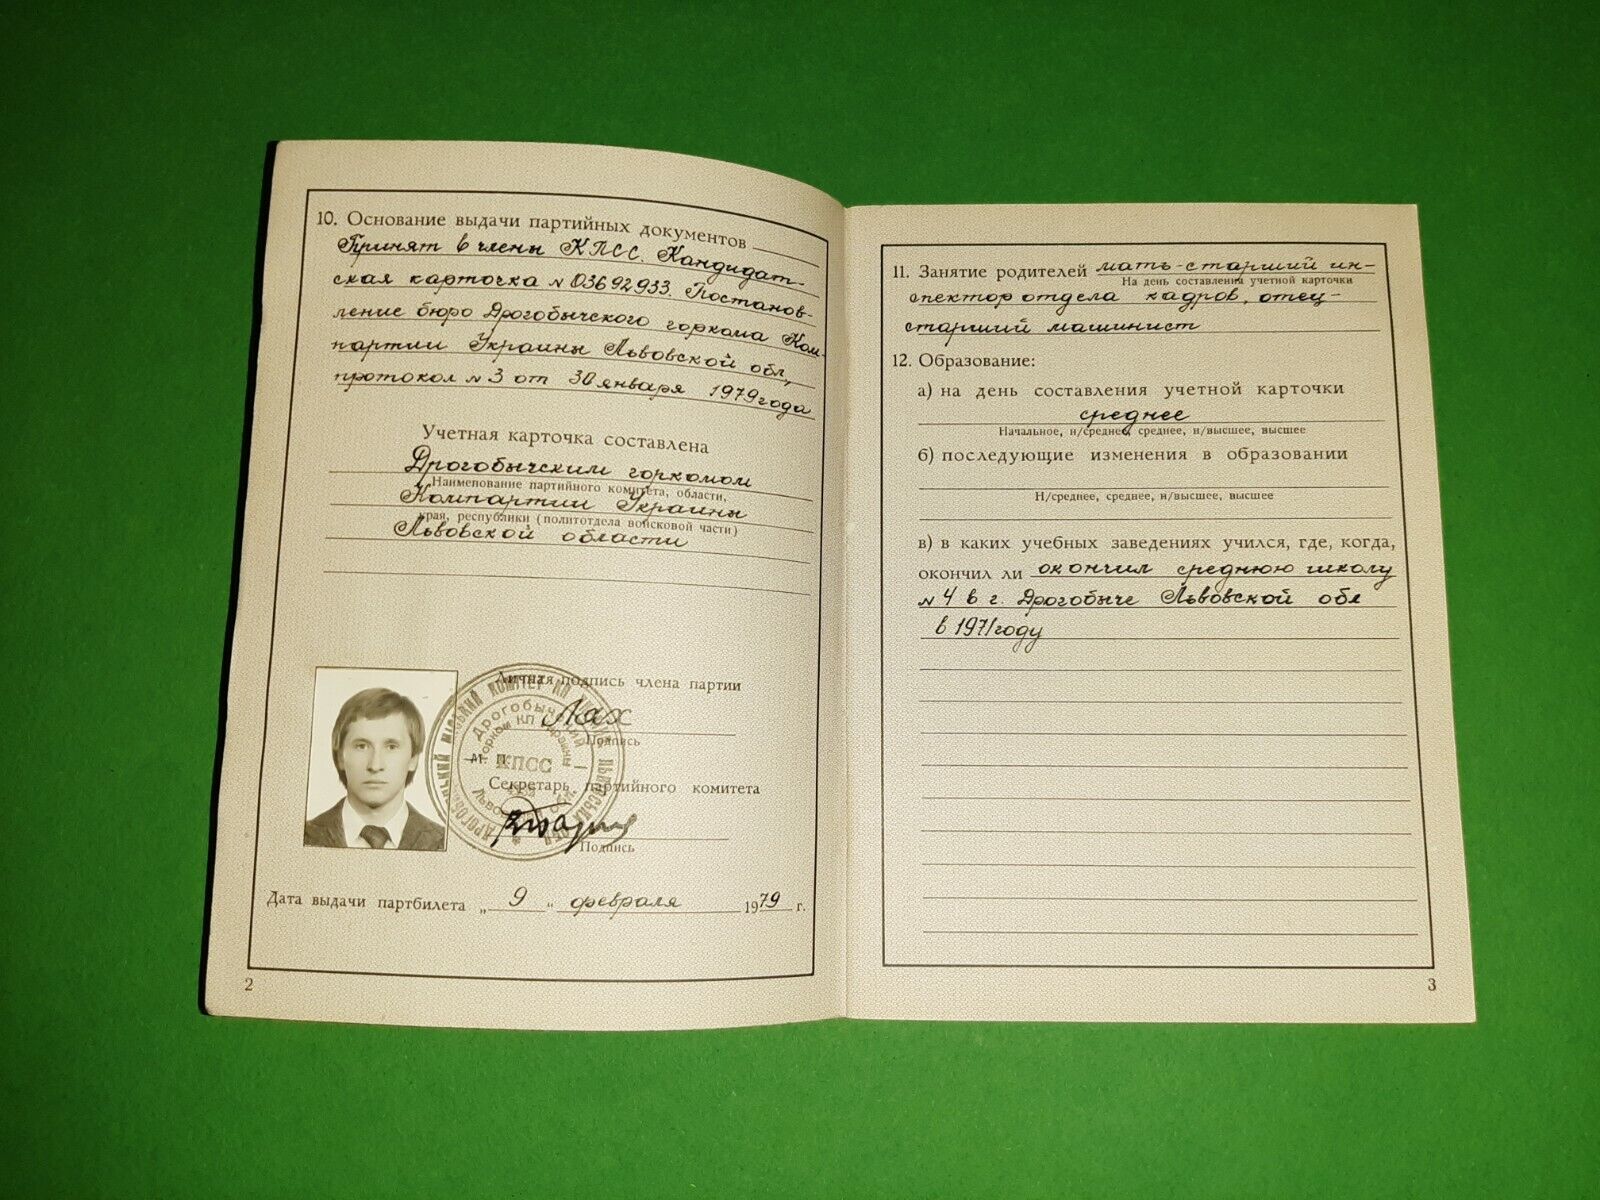 10. Основание выдачи партийных документов
Принят в члены КПСС. Кандидат-
ская карточка №03692933. Постанов-
ление бюро Дрогобычского горкома Ком-
партии Украины Львовской обл,
протокол №3 от 30 января 1979 года
Учетная карточка составлена
Дрогобычским горкомом
Наименование партийного комитета, области,
Компартии Украины
края, республики (политотдела войсковой части)
Львовской области
Личная подпись члена партии
Лах
Подпись
М. П.
КПСС
Дрогобычский
горком КП Украины
Секретарь партийного комитета
Подпись
Дата выдачи партбилета „ 9 “ февраля 1979 г.
2
11. Занятие родителей мать-старший ин-
На день составления учетной карточки
спектор отдела кадров, отец-
старший машинист
12. Образование:
а) на день составления учетной карточки
среднее
Начальное, н/среднее, среднее, н/высшее, высшее
б) последующие изменения в образовании
Н/среднее, среднее, н/высшее, высшее
в) в каких учебных заведениях учился, где, когда,
окончил ли окончил среднюю школу
№4 в г. Дрогобыче Львовской обл
в 1971 году
3